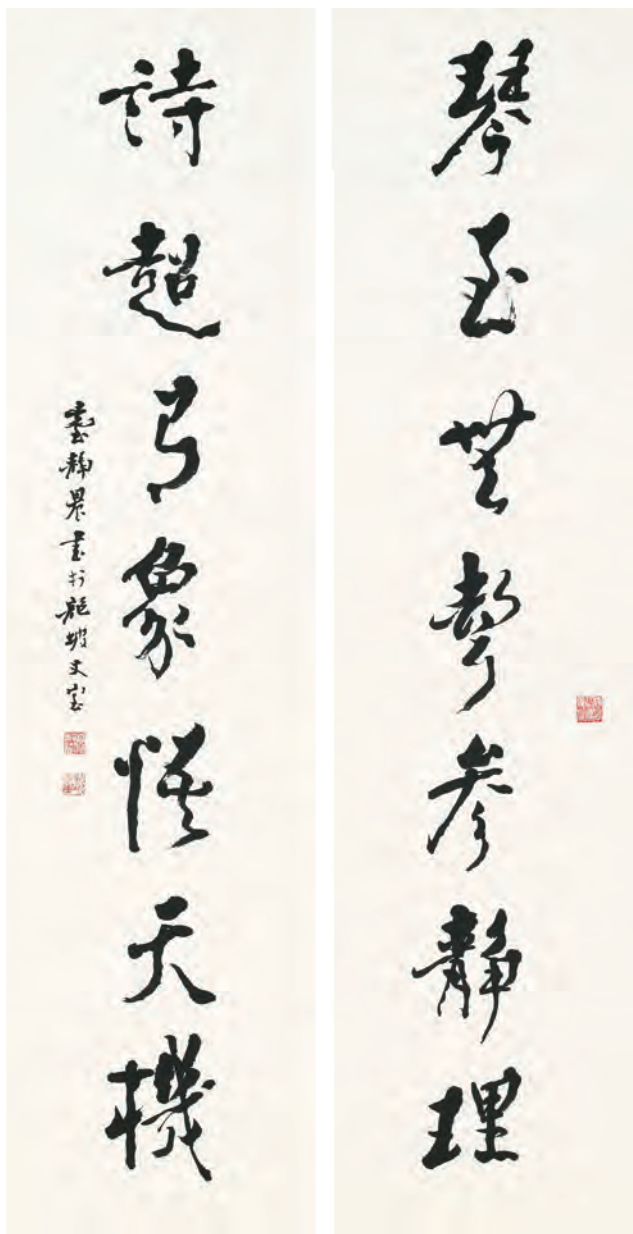 琴至無聲參靜理
詩超有象悟天機
臺靜農書於龍坡丈室